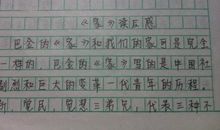 《家》读后感
巴金的《家》和我们的家可是完全
一样的。巴金的《家》里的是中国社
剧烈和巨大的变革一代青年的历程。
所 觉民，觉慧三弟兄，代表三种不